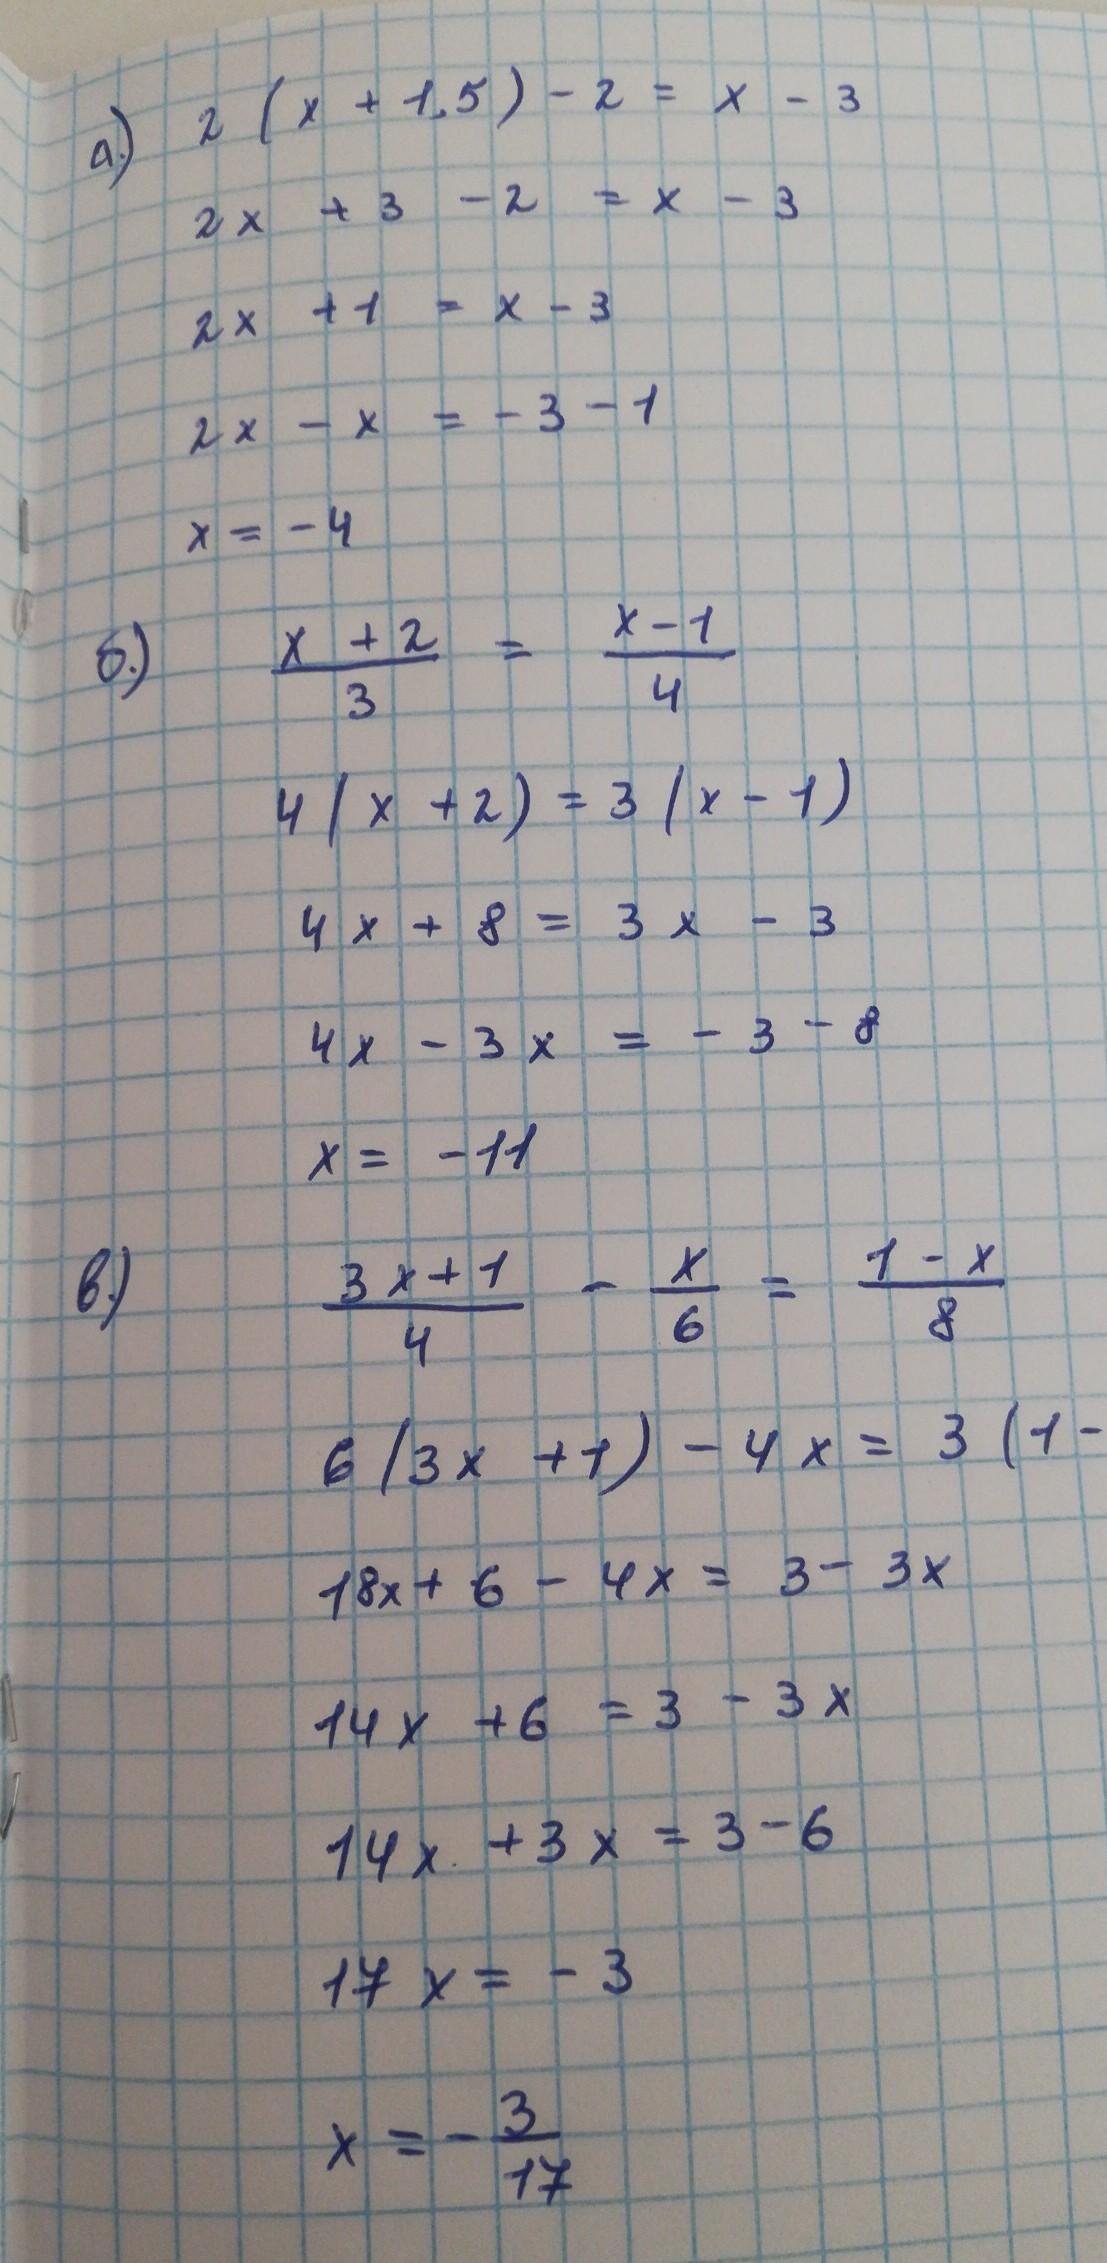 а.) 2 (x + 1,5) - 2 = x - 3
2x + 3 - 2 = x - 3
2x + 1 = x - 3
2x - x = - 3 - 1
x = - 4
б.) x + 2 / 3 = x - 1 / 4
4 (x + 2) = 3 (x - 1)
4x + 8 = 3x - 3
4x - 3x = - 3 - 8
x = - 11
в.) 3x + 1 / 4 - x / 6 = 1 - x / 8
6 (3x + 1) - 4x = 3 (1 -
18x + 6 - 4x = 3 - 3x
14x + 6 = 3 - 3x
14x + 3x = 3 - 6
17x = - 3
x = - 3 / 17